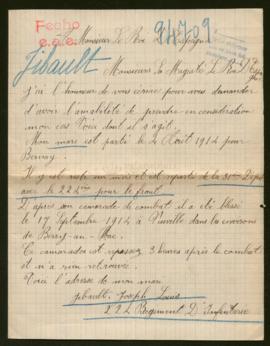 Fecho
c.a.e.
94709
A Monsieur Le Roi d'Espagne
Gibault
Monsieur Sa Majesté Le Roi d'Espagne
j'ai l'honneur de vous écrire pour vous demander
d'avoir l'amabilité de prendre en considération
mon cas Voici dont il s'agit.
Mon mari est parti le 4 Août 1914 pour
Bernay
Il y est resté un mois et est reparti de la Dépôt
avec le 222ème pour le front
D'après son camarade de combat il a été blessé
le 17 Septembre 1914 à dans les environs
de Berry-au-Bac.
Ce camarades est repassé 3 heures après le combat
et n'a rien retrouvé.
Voici l'adresse de mon mari
Gibault Joseph Louis
222 Régiment D'Infanterie